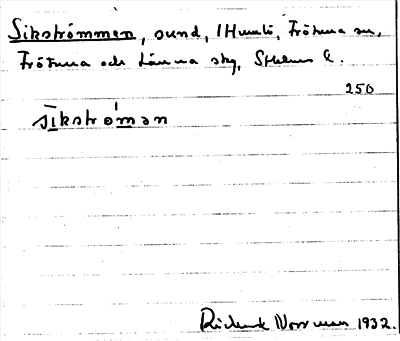 Sikströmmen, sund, i Humlö, Frötuna sn,
Frötuna och Länna skg, Sthlms l.
250
sikstroman
Rickard Norrman 1932.